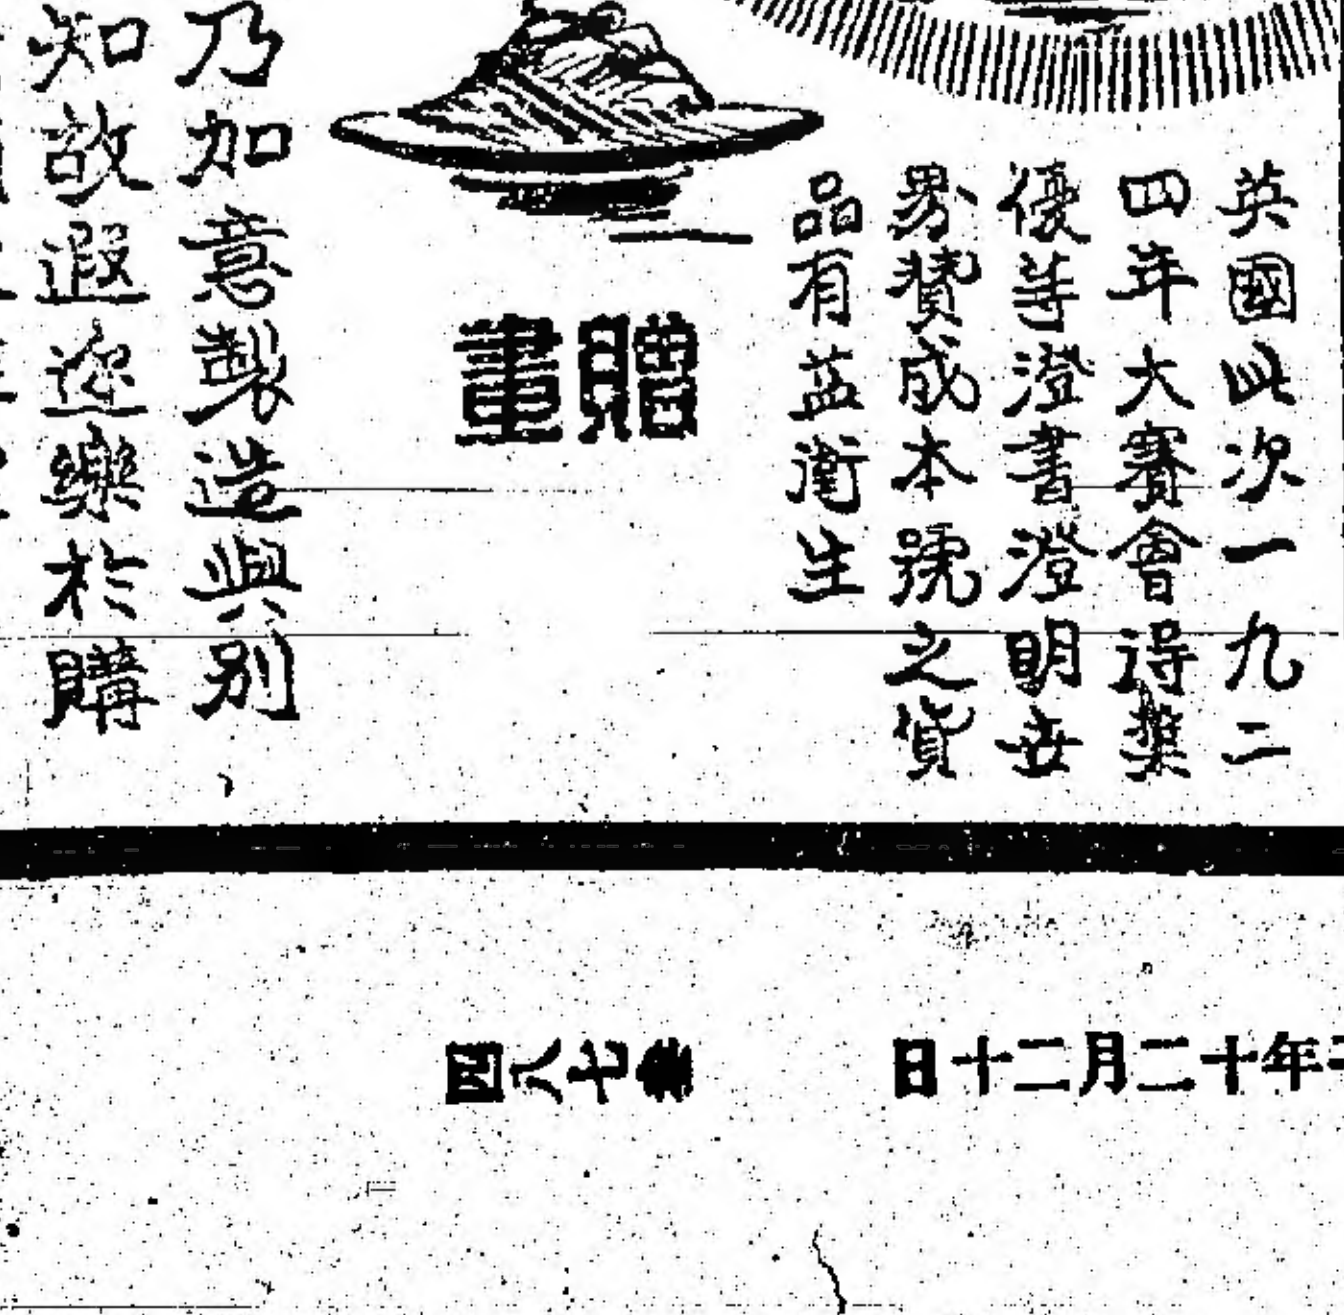 英國此次一九二
四年大賽會得獎
優等證書證明世
界贊成本號之貨
品有益衛生
贈畫
乃加意製造與別
知故遐迩樂於購
年十二月二十日
七八四